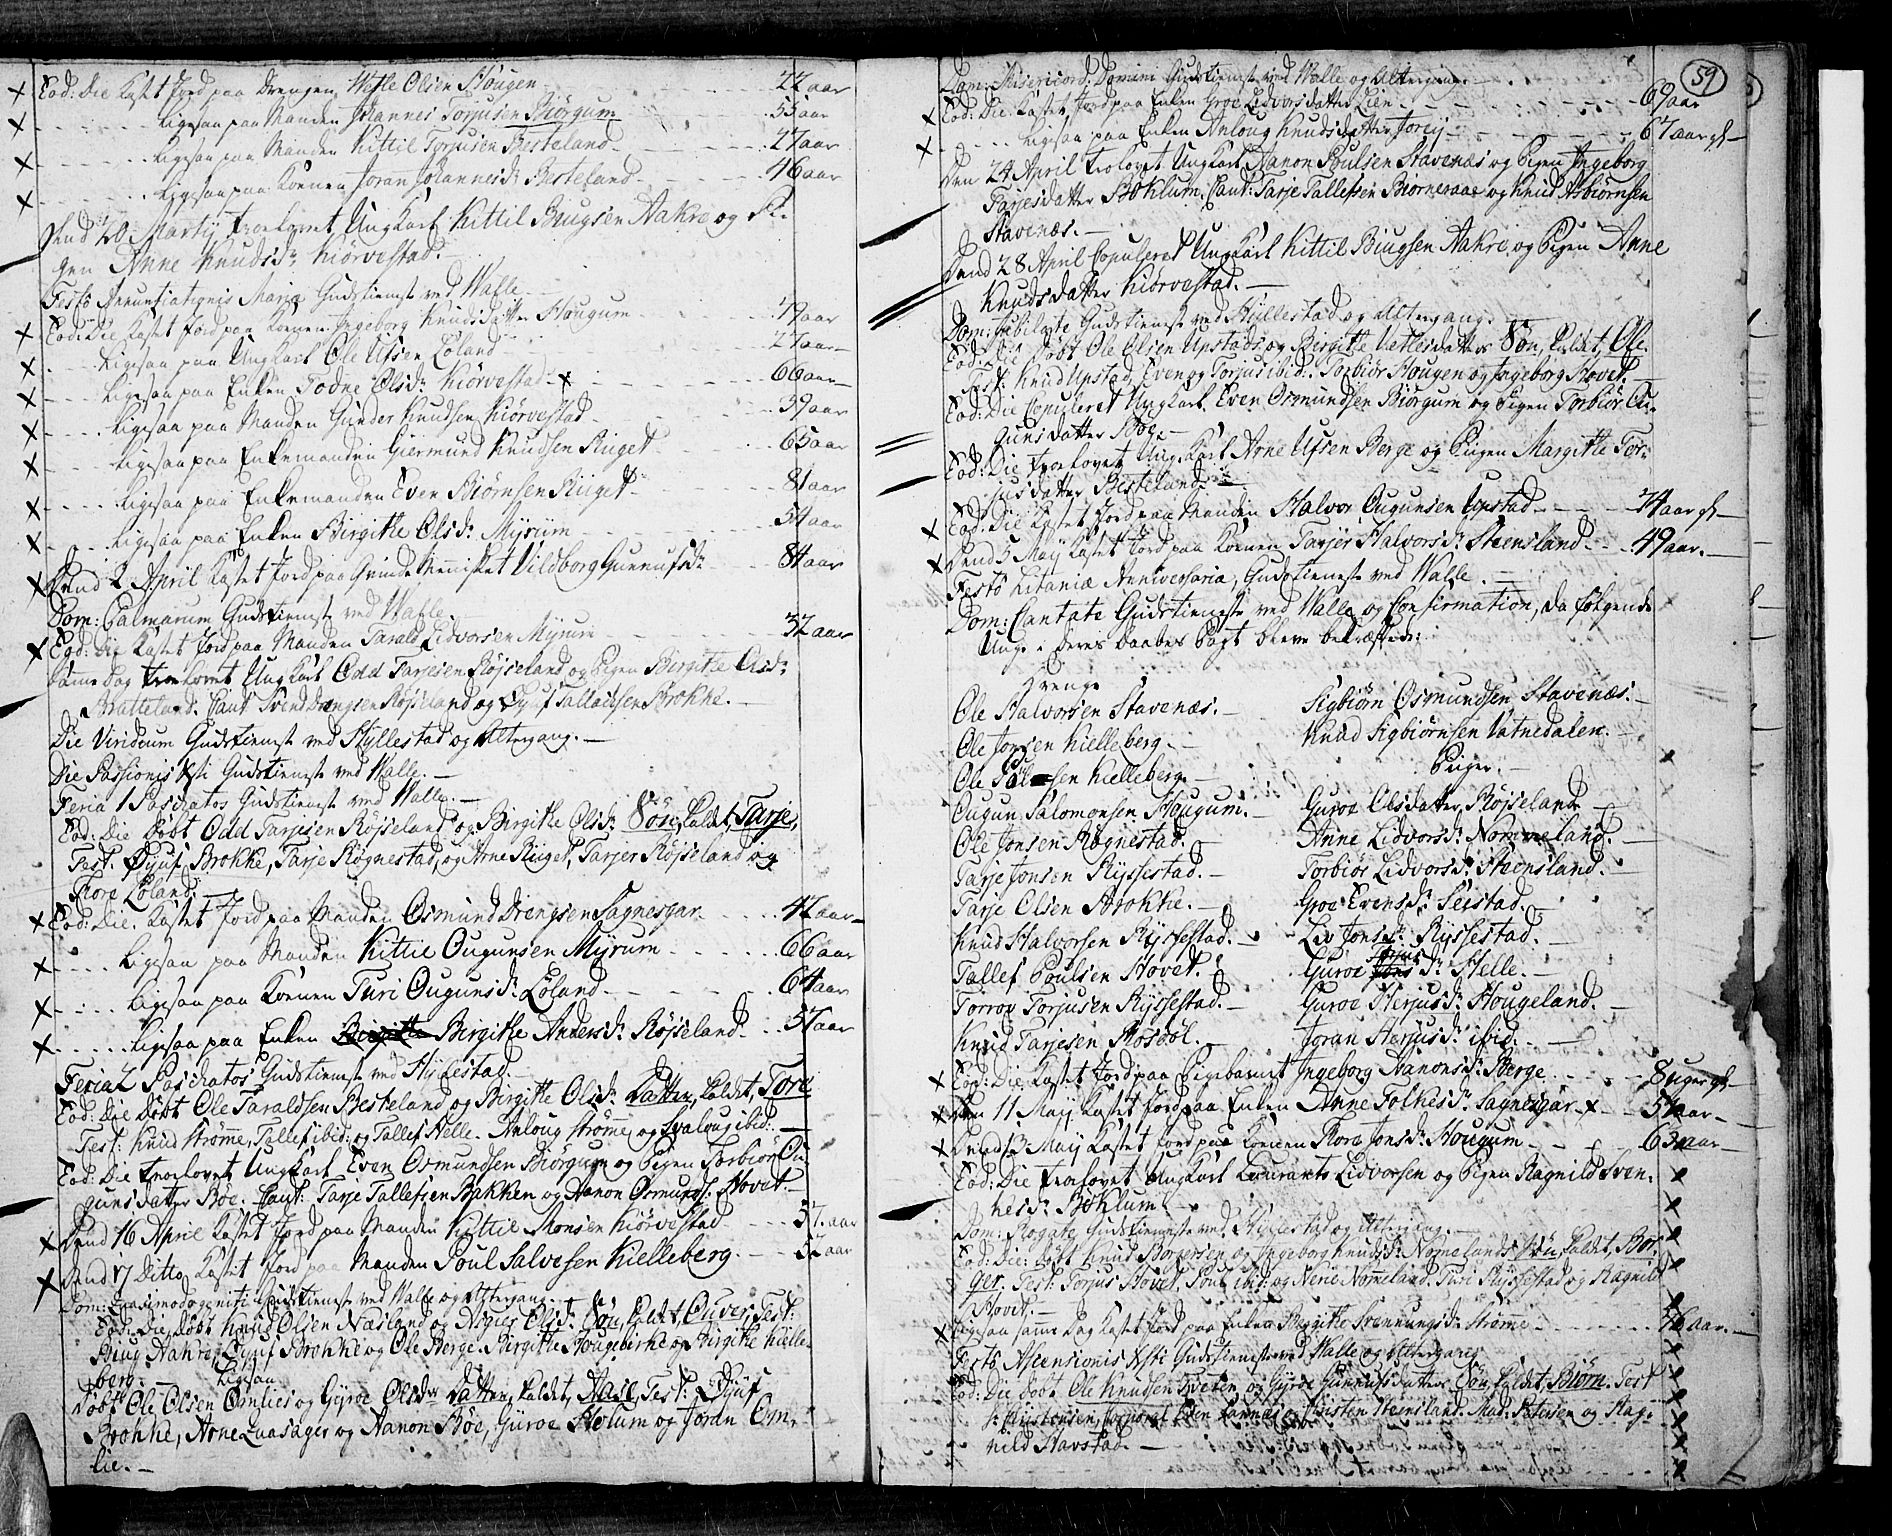 Eod: Die Kastet Jord paa Drengen Wetle Olsen Hougen - - - 22 aar
- - - Ligesaa paa Manden Johannes Torjusen Biörgum - - - 55 aar
- - - Ligesaa paa Manden Kittil Torjusen Besteland - - - 27 aar
- - - Ligesaa paa Konen Joran Johannesd: Besteland - - - 46 aar
Dend 20 Martij Troelovet Ung Karl Kittil Biugsen Aakre og Pi-
gen Anne Knudsd: Kiörvestad.
Festo Annunciationis Mariæ Gudstieneste ved Walle. —
Eod: Die Kastet Jord paa Konen Ingeborg Knudsdatter Hougum - - - 79 aar
- - - Ligesaa paa Ung Karl Ole Ufsen Löland - - - 27 aar
- - - Ligesaa paa Enken Todne Olsd: Kiörvestad - - - 66 aar
- - - Ligesaa paa Manden Gunder Knudsen Kiörvestad - - - 39 aar
- - - Ligesaa paa Enkemanden Giermund Knudsen Riiget - - - 65 aar
- - - Ligesaa paa Enkemanden Even Biörnsen Riiget - - - 81 aar
- - - Ligesaa paa Enken Birgitte Olsd: Myrum - - - 54 aar
Dend 2 April Kastet Jord paa Qvinde Mennisket Vildborg Gunnufsd: - - - 84 aar
Dom: Palmarum Gudstieneste ved Walle.
Eod: Die Kastet Jord paa Manden Tarald Lidvorsen Myrum - - - 32 aar
Samme Dag Troelovet Ung Karl Odd Tarjesen Röjseland og Pigen Birgitte Olsd:
Bratteland. Caut: Svend Drengsen Röjseland og Dyuf Talladsen Brokke. —
Die Viridium Gudstieneste ved Hyllestad og Altergang. —
Die Passionis Xsti Gudstieneste ved Walle. —
Feria 1 Paschatos Gudstieneste ved Walle. —
Eod: Die Döbt Odd Tarjesen Röjseland og Birgitte Olsd: Sön, Kaldet, Tarje,
Test: Dyuf Brokke, Tarje Rögnestad, og Arne Riiget, Tarjer Röjseland og
Thore Löland. —
Eod: Die Kastet Jord paa Manden Osmund Drengsen Sagnesgar - - - 42 aar
- - - Ligesaa paa Manden Kittil Ougunsen Myrum - - - 66 aar
- - - Ligesaa paa Konen Turi Ougunsd: Löland - - - 64 aar
- - - Ligesaa paa Enken Birgitte Birgitte Andersd: Röjseland - - - 57 aar
Feria 2 Paschatos Gudstieneste ved Hyllestad. —
Eod: Die Döbt Ole Taraldsen Besteland og Birgitte Olsd: Datter, Kaldet, Tore
Test: Knud Strömme, Tallef ibid: og Tallef Helle. Anloug Strömme og Svaloug ibid: —
Eod: Die Troelovet Ung Karl Even Osmundsen Biörgum og Pigen Torbiör Ou-
gunsdatter Böe. Caut: Tarje Tallefsen Bakken og Aanon Osmunds: Hovet. —
Dend 16 April Kastet Jord paa Manden Kittil Monsen Kiörvestad - - - 37 aar
Dend 17 Ditto Kastet Jord paa Manden Poul Salvesen Kielleberg. - - - 52 aar
Dom: Quasimodogeniti Gudstieneste ved Walle og Altergang. —
Eod: Die Döbt Knud Olsen Næsland og Asgier Olsd: Sön, Kaldet, Ouver, Test:
Biug Aakre, Dyuf Brokke og Ole Berge. Birgitte Hougebirke og Birgitte Kielle-
berg. — Ligesaa
Döbt Ole Olsen Omlies og Gyroe Olsd: Datter, Kaldet, Aasil, Test: Dyuf
Brokke, Arne Quasager og Aanon Böe, Gyroe Holum og Joran Om-
lie. —
59
Dom: Misericord: Domini Gudstieneste ved Walle og Altergang. —
Eod: Die Kastet Jord paa Enken Groe Lidvorsdatter Lien - - - 69 aar
- - - Ligesaa paa Enken Anloug Knudsdatter Torey - - - 67 aar gl —
Den 24 April Trolovet Ung Karl Aanon Poulsen Stavenæs og Pigen Ingeborg
Tarjesdatter Boklum. Caut: Tarje Tallefsen Biørnevaae og Knud Asbiørnsen
Stavenæs. —
Dend 28 April Copuleret Ung Karl Kittil Biugsen Aakre og Pigen Anne
Knudsdatter Kiörvestad. —
Dom: Jubilate Gudstieneste ved Hyllestad og Altergang. —
Eod: Die Döbt Ole Olsen Upstads og Birgitte Vetlesdatters Sön, Kaldet, Ole.
Test: Knud Upstad, Even og Torjus ibid: Torbiör Hougen og Ingeborg Hovet. —
Eod: Die Copuleret Ung Karl Even Osmundsen Biörgum og Pigen Torbiör Ou-
gunsdatter Böe. —
Eod: Die Troelovet Ung Karl Arne Ufsen Berge og Pigen Margitte Tor-
jusdatter Besteland. —
Eod: Die Kastet Jord paa Manden Halvor Ougunsen Upstad - - - 74 aar gl —
Dend 5 Maij Kastet Jord paa Konen Tarjer Halvorsd: Steensland - - 49 aar. —
Festo Litaniæ Anniversaria, Gudstieneste ved Walle. —
Dom: Cantate Gudstieneste ved Walle og Confirmation, da fölgende
Unge i deres Daabes Pagt bleve bekræftede:
Drenge
Ole Halvorsen Stavenæs. —
Ole Jonsen Kielleberg. —
Ole Kielleberg. —
Ougun Salomonsen Hougum. —
Ole Jonsen Rögnestad. —
Tarje Jonsen Ryssestad. —
Tarje Olsen Brokke. —
Knud Halvorsen Ryssestad. —
Tallef Poulsen Hovet. —
Torrov Torjusen Ryssestad. —
Knud Tarjesen Rosböl. —
Sigbiörn Osmundsen Stavenæs. —
Knud Sigbiörnsen Vatnedalen. —
Piiger. —
Guroe Olsdatter Röjseland —
Anne Lidvorsd: Nommeland. —
Torbiör Lidvorsd: Steensland. —
Groe Evensd: Seistad. —
Liv Jonsd: Ryssestad. —
Guroe Jons Torjus D: Helle. —
Guroe Herjusd: Hougeland. —
Joran Herjusd: ibid. —
Eod: Die Kastet Jord paa Pigebarnet Ingeborg Aanonsd: Berge - - - 8 uger gl —
Den 11 Maij Kastet Jord paa Enken Anne Folkesd: Sagnesgar - - - 54 aar —
Dend 13 Maij Kastet Jord paa Konen Thore Jonsd: Hougum - - - 63 aar —
Eod: Die Troelovet Ung Karl Laurants Lidvorsen og Pigen Ragnild Sven-
kesd: Boklum. —
Dom: Rogate Gudstieneste ved Hyllestad og Altergang. —
Eod: Die: Döbt Knud Borgersen og Ingeborg Knudsd: Nomelands Sön, Kaldet, Bor-
ger. Test: Torjus Hovet, Poul ibid: og Neri Nomeland. Turi Ryssestad og Ragnild
Hovet. —
Ligesaa samme Dag Kastet Jord paa Enken Birgitte Svennungsd: Strömme - - - 76 aar. —
Festo Ascensionis Xsti Gudstieneste ved Walle og Altergang
Eod: Die Döbt Ole Knudsen Tveten og Gyroe Gunnufsdatters Sön, Kaldet, Biörn. Test
og Kirsten Steensland. Mad: Petersen og Rag-
nild Havstad. —